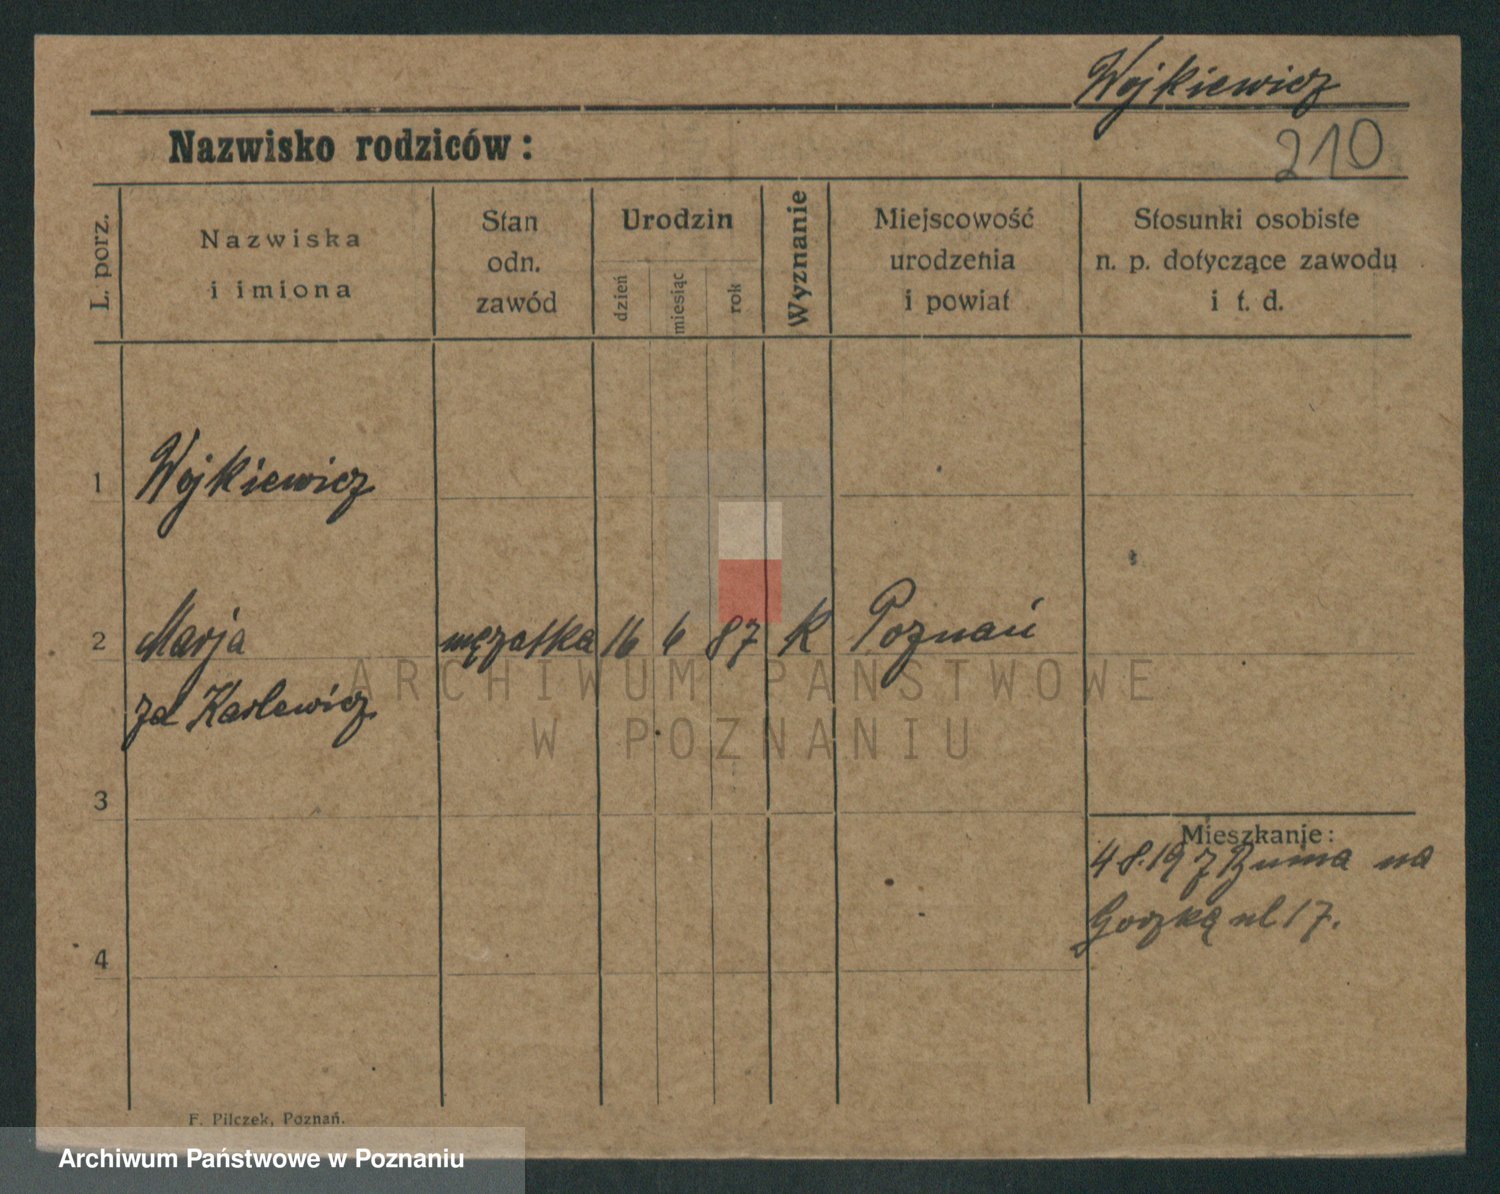 Wojkiewicz
210
Nazwisko rodziców:
L. porz.
Nazwiska
i imiona
Stan
odn.
zawód
Urodzin
dzień
miesiąc
rok
Wyznanie
Miejscowość
urodzenia
i powiat
Stosunki osobiste
n. p. dotyczące zawodu
i t. d.
1 Wojkiewicz
2 Marja mężatka 16 6 87 K Poznań
za Karlewicz
ARCHIWUM PAŃSTWOWE
W POZNANIU
3
Mieszkanie:
4 8.19 z Buina na
Gorzką ul 17.
4
F. Pilczek, Poznań.
Archiwum Państwowe w Poznaniu